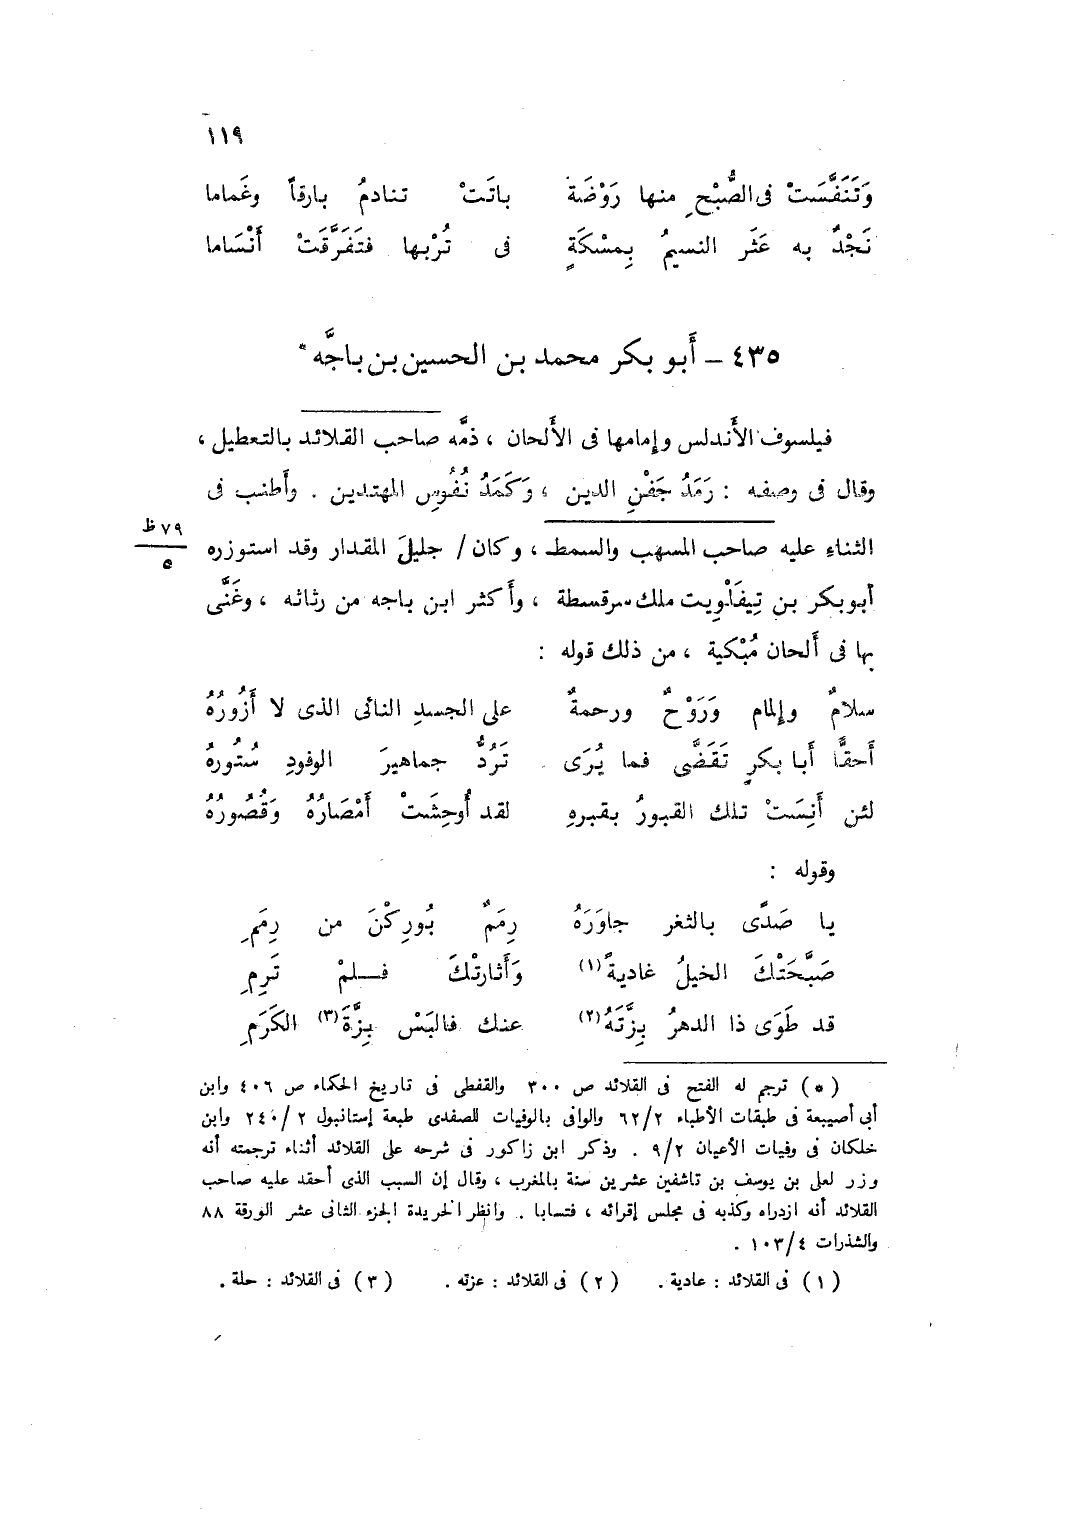 ١١٩
وَتَنَفَّسَتْ فى الصُّبْحِ منها رَوْضَة باتَتْ تنادمُ بارقاً وغَماما
نَجْدٌ به عَثَر النسيمُ بِمسْكَةٍ فى تُرْبها فتَفَرَّقَتْ أَنْسَاما
٤٣٥ – أَبو بكر محمد بن الحسين بن باجَّه *
فيلسوف الأَندلس وإِمامها فى الأَلحان ، ذمَّه صاحب القلائد بالتعطيل ،
وقال فى وصفه : رَمَدُ جَفْنِ الدين ، وَكَمَدُ نُفُوسِ المهتدين . وأَطنب فى
الثناءِ عليه صاحب المسهب والسمط ، وكان / جليلَ المقدار وقد استوزره
٧٩ ظ
٥
أَبو بكر بن تِيفَلْوِيت ملك سرقسطة ، وأَكثر ابن باجه من رثائه ، وغَنَّى
بها فى أَلحان مُبْكية ، من ذلك قوله :
سلامٌ وإِلمام وَرَوْحٌ ورحمةٌ على الجسدِ النائى الذى لا أَزُورُهُ
أَحقًّا أَبا بكرٍ تَقَضَّى فما يُرَى تَرُدُّ جماهيرَ الوفودِ سُتُورهُ
لئن أَنِسَتْ تلك القبورُ بقبرهِ لقد أُوحِشَتْ أَمْصَارُهُ وَقُصُورُهُ
وقوله :
يا صَدًى بالثغر جاوَرَهُ رِمَمٌ بُورِكْنَ من رِمَمِ
صَبَّحَتْكَ الخيلُ غاديةً(١) وَأَثارتْكَ فلمْ تَرِمِ
قد طَوَى ذا الدهرُ بِزَّتَهُ(٢) عنك فالبَسْ بِزَّةَ(٣) الكَرَمِ
(*) ترجم له الفتح فى القلائد ص ٣٠٠ والقفطى فى تاريخ الحكماء ص ٤٠٦ وابن
أبى أصيبعة فى طبقات الأطباء ٦٢/٢ والوافى بالوفيات للصفدى طبعة إستانبول ٢٤٠/٢ وابن
خلكان فى وفيات الأعيان ٩/٢ . وذكر ابن زاكور فى شرحه على القلائد أثناء ترجمته أنه
وزر لعلى بن يوسف بن تاشفين عشرين سنة بالمغرب ، وقال إن السبب الذى أحقد عليه صاحب
القلائد أنه ازدراه وكذبه فى مجلس إقرائه ، فتسابا . وانظر الخريدة الجزء الثانى عشر الورقة ٨٨
والشذرات ١٠٣/٤ .
(١) فى القلائد : عادية . (٢) فى القلائد : عزته . (٣) فى القلائد : حلة .